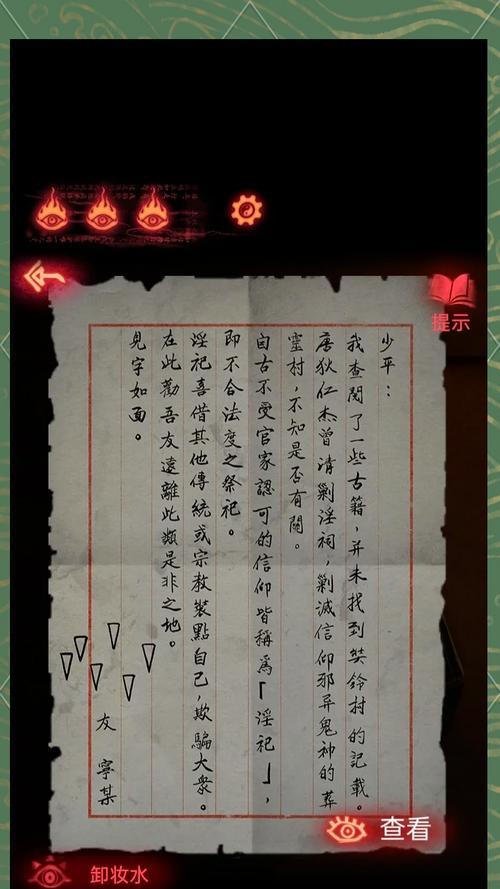 提示
少平：
我查閱了一些古籍，并未找到奘鈴村的記載。
唐狄仁杰曾清剿淫祠，剿滅信仰邪异鬼神的葬
靈村，不知是否有關。
自古不受官家認可的信仰皆稱爲「淫祀」，
即不合法度之祭祀。
淫祀喜借其他傳統或宗教裝點自己，欺騙大衆。
在此勸吾友遠離此類是非之地。
見字如面。
友 寧某
查看
卸妆水